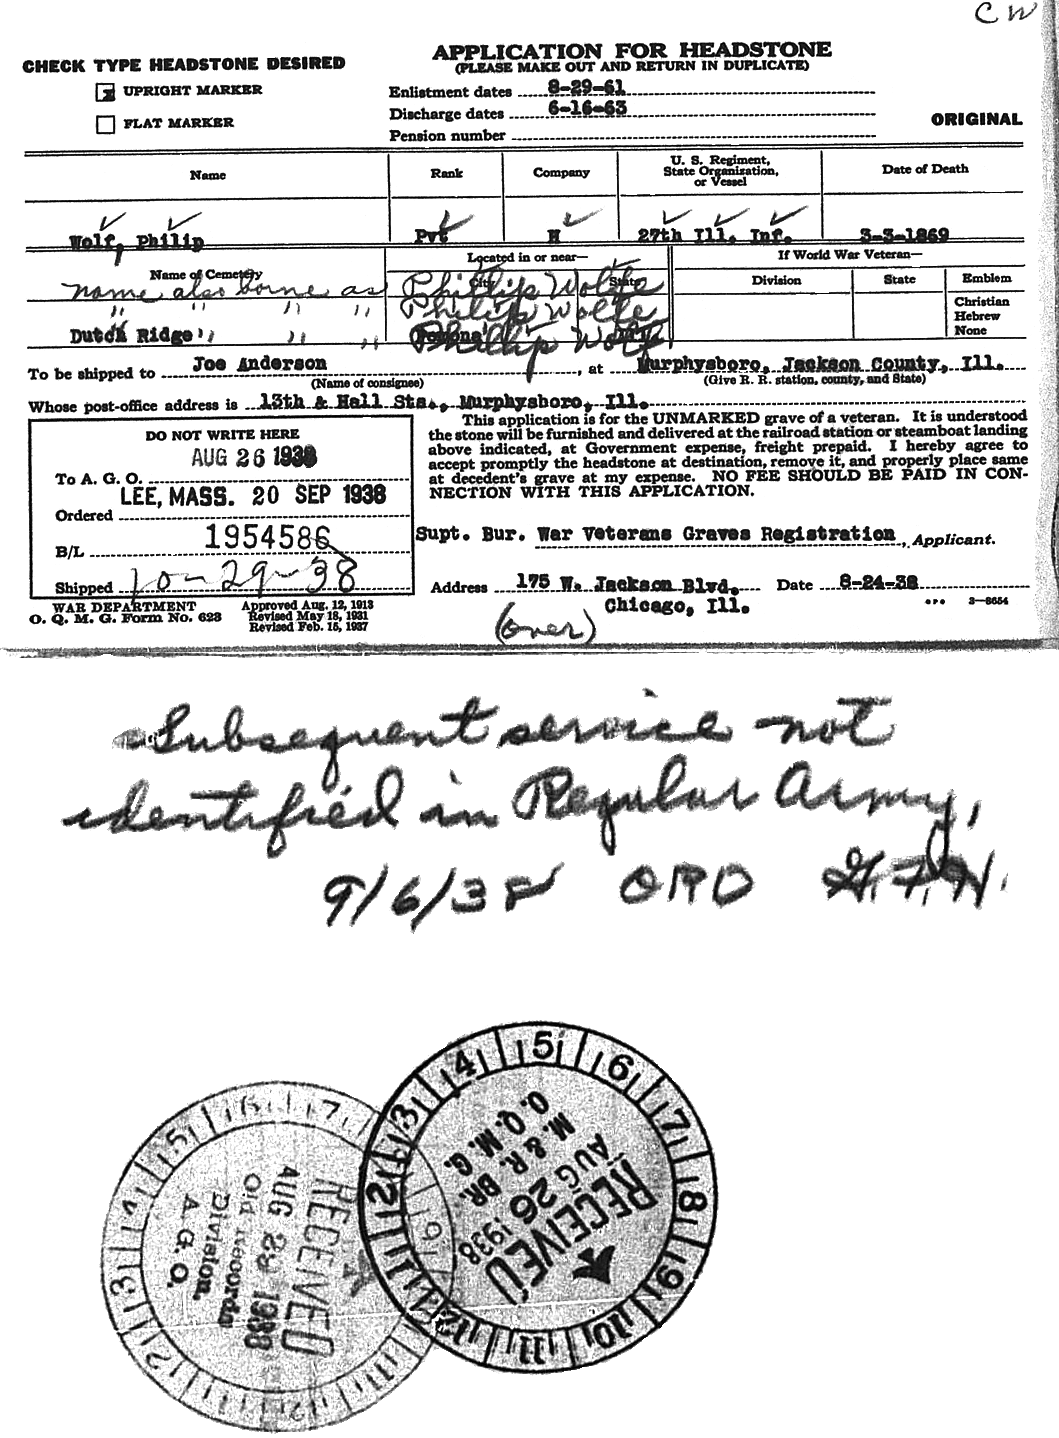 C W
CHECK TYPE HEADSTONE DESIRED
UPRIGHT MARKER
FLAT MARKER
APPLICATION FOR HEADSTONE
(PLEASE MAKE OUT AND RETURN IN DUPLICATE)
Enlistment dates 8-29-61
Discharge dates 6-16-63
Pension number
ORIGINAL
Name Rank Company U. S. Regiment, State Organization, or Vessel Date of Death
Wolf, Philip Pvt H 27th Ill. Inf. 3-3-1869
Name of Cemetery
Located in or near—
City State
If World War Veteran—
Division State Emblem
Christian
Hebrew
None
name also borne as Phillip Wolfe
" " " " Philip Wolfe
" " " " Phillip Wolf
Dutch Ridge
To be shipped to Joe Anderson, at Murphysboro, Jackson County, Ill.
(Name of consignee) (Give R. R. station, county, and State)
Whose post-office address is 13th & Hall Sts., Murphysboro, Ill.
DO NOT WRITE HERE
AUG 26 1938
To A. G. O.
LEE, MASS. 20 SEP 1938
Ordered
B/L 1954586
Shipped 10-29-38
This application is for the UNMARKED grave of a veteran. It is understood
the stone will be furnished and delivered at the railroad station or steamboat landing
above indicated, at Government expense, freight prepaid. I hereby agree to
accept promptly the headstone at destination, remove it, and properly place same
at decedent's grave at my expense. NO FEE SHOULD BE PAID IN CON-
NECTION WITH THIS APPLICATION.
Supt. Bur. War Veterans Graves Registration, Applicant.
Address 175 W. Jackson Blvd. Date 8-24-38
Chicago, Ill.
WAR DEPARTMENT
O. Q. M. G. Form No. 623
Approved Aug. 12, 1913
Revised May 18, 1931
Revised Feb. 15, 1937
GPO 3-8654
(over)
Subsequent service not
identified in Regular Army,
9/6/38 ORD
RECEIVED
AUG 26 1938
M. & R. BR.
O. Q. M. G.
1 2 3 4 5 6 7 8 9 10 11 12
RECEIVED
1938
Old Records
Division.
A. G. O.